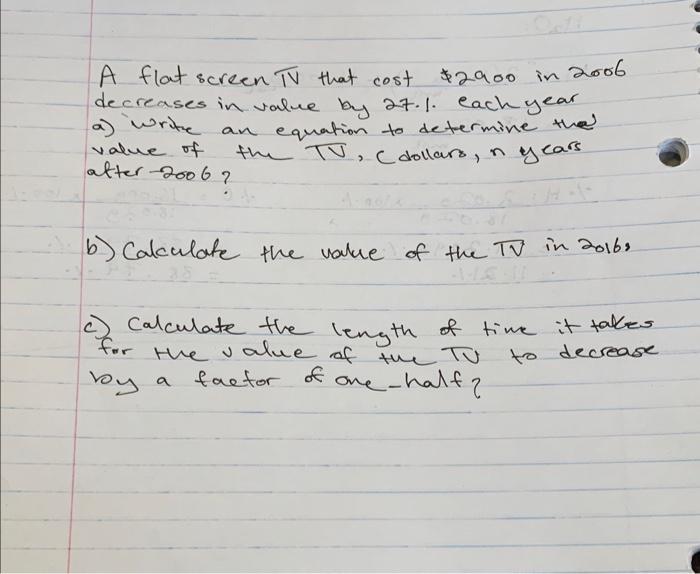 A flat screen TV that cost $2900 in 2006
decreases in value by 27.1. each year
a) Write an equation to determine the
value of the TV, C dollars, n years
after 2006?
b) Calculate the value of the TV in 2016.
c) Calculate the length of time it takes
for the value of the TV to decrease
by a factor of one-half?